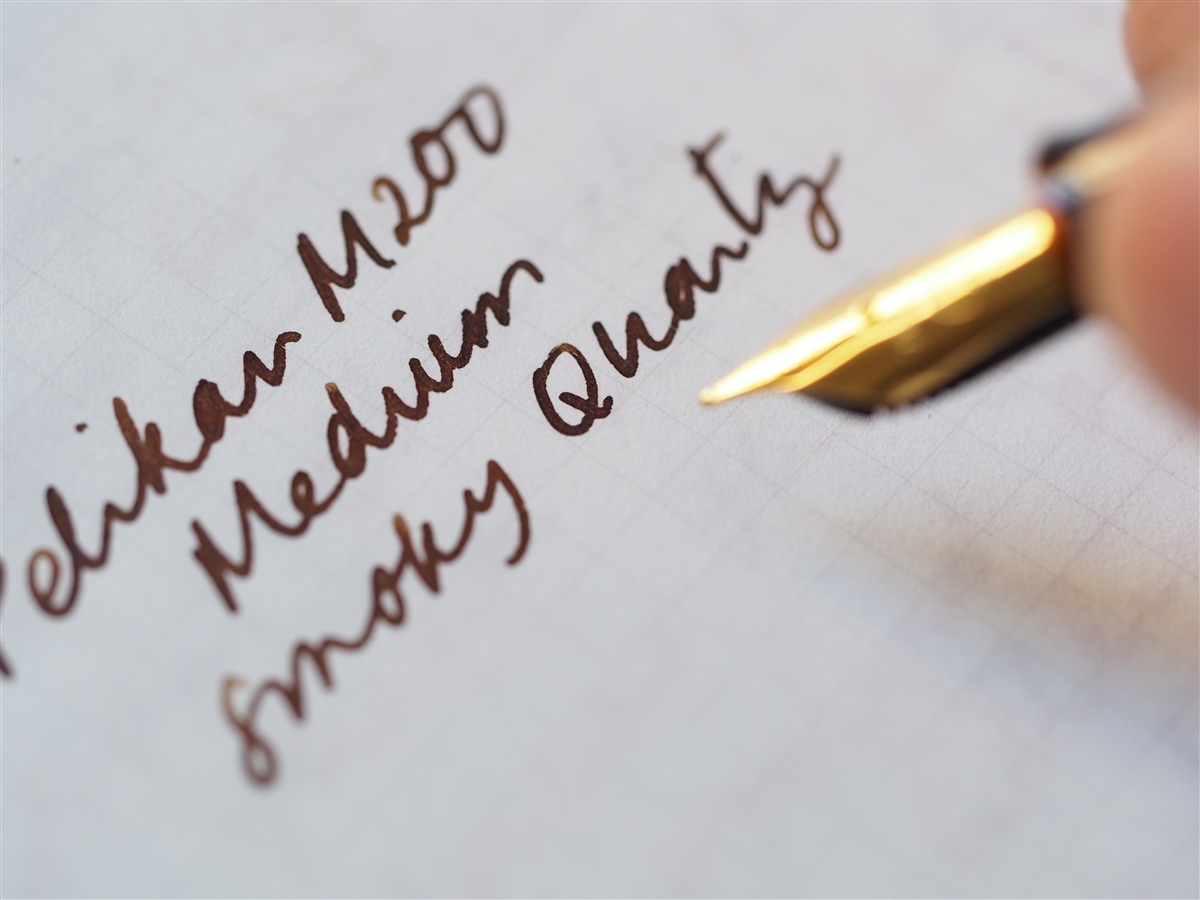 Pelikan M200
Medium
smoky Quartz